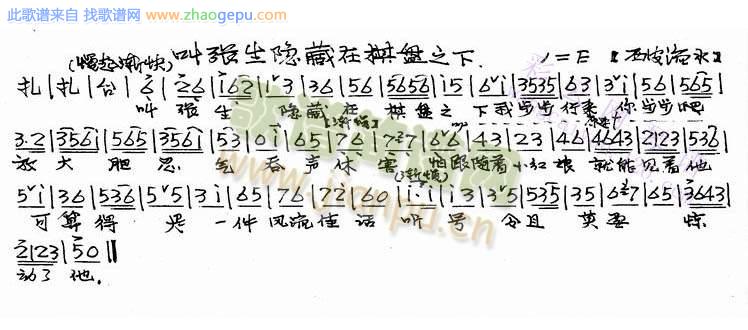 此歌谱来自 找歌谱网
www.zhaogepu.com
(慢起渐快) 叫张生隐藏在棋盘之下. 1=E 【西皮流水】
扎|扎|台|6|26|162|3|36|56|5656|15|6 1|3535|63|3 1|56|565|
叫 张 生 隐 藏 在 棋 盘 之 下 我 步 步 行来 你 步 步 爬
3·2|3561|565|3561|53|01|65|76|727|66|43|23|46|4643|2123|536|
放 大 胆 忍 气 吞 声 休 害 怕 跟随着 小红娘 就能见着他
5 1|36|536|5 5|3 1|65|76|72|60|1·1|1 3|3 5|535|35|627|65|3643|
可 算得 是 一件 风流佳 话 听 号 令且 莫要 惊
2123|50‖
动了 他.